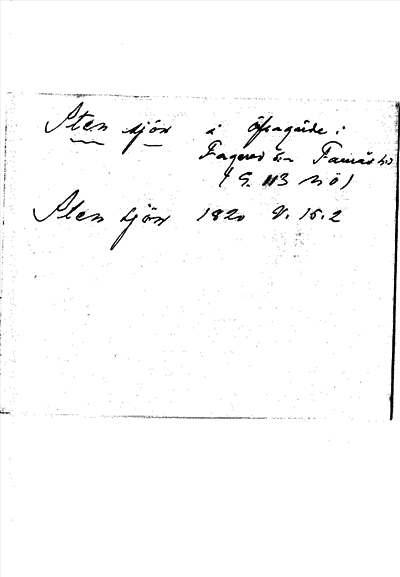 Sten sjön å Öfragärde i
Fagered
(G. 113 NÖ)
Sten sjön 1820 V. 15.2